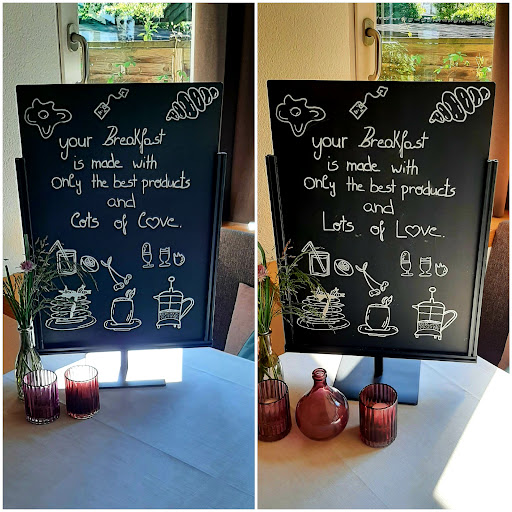 your Breakfast
is made with
only the best products
and
Lots of Love.
your Breakfast
is made with
only the best products
and
Lots of Love.